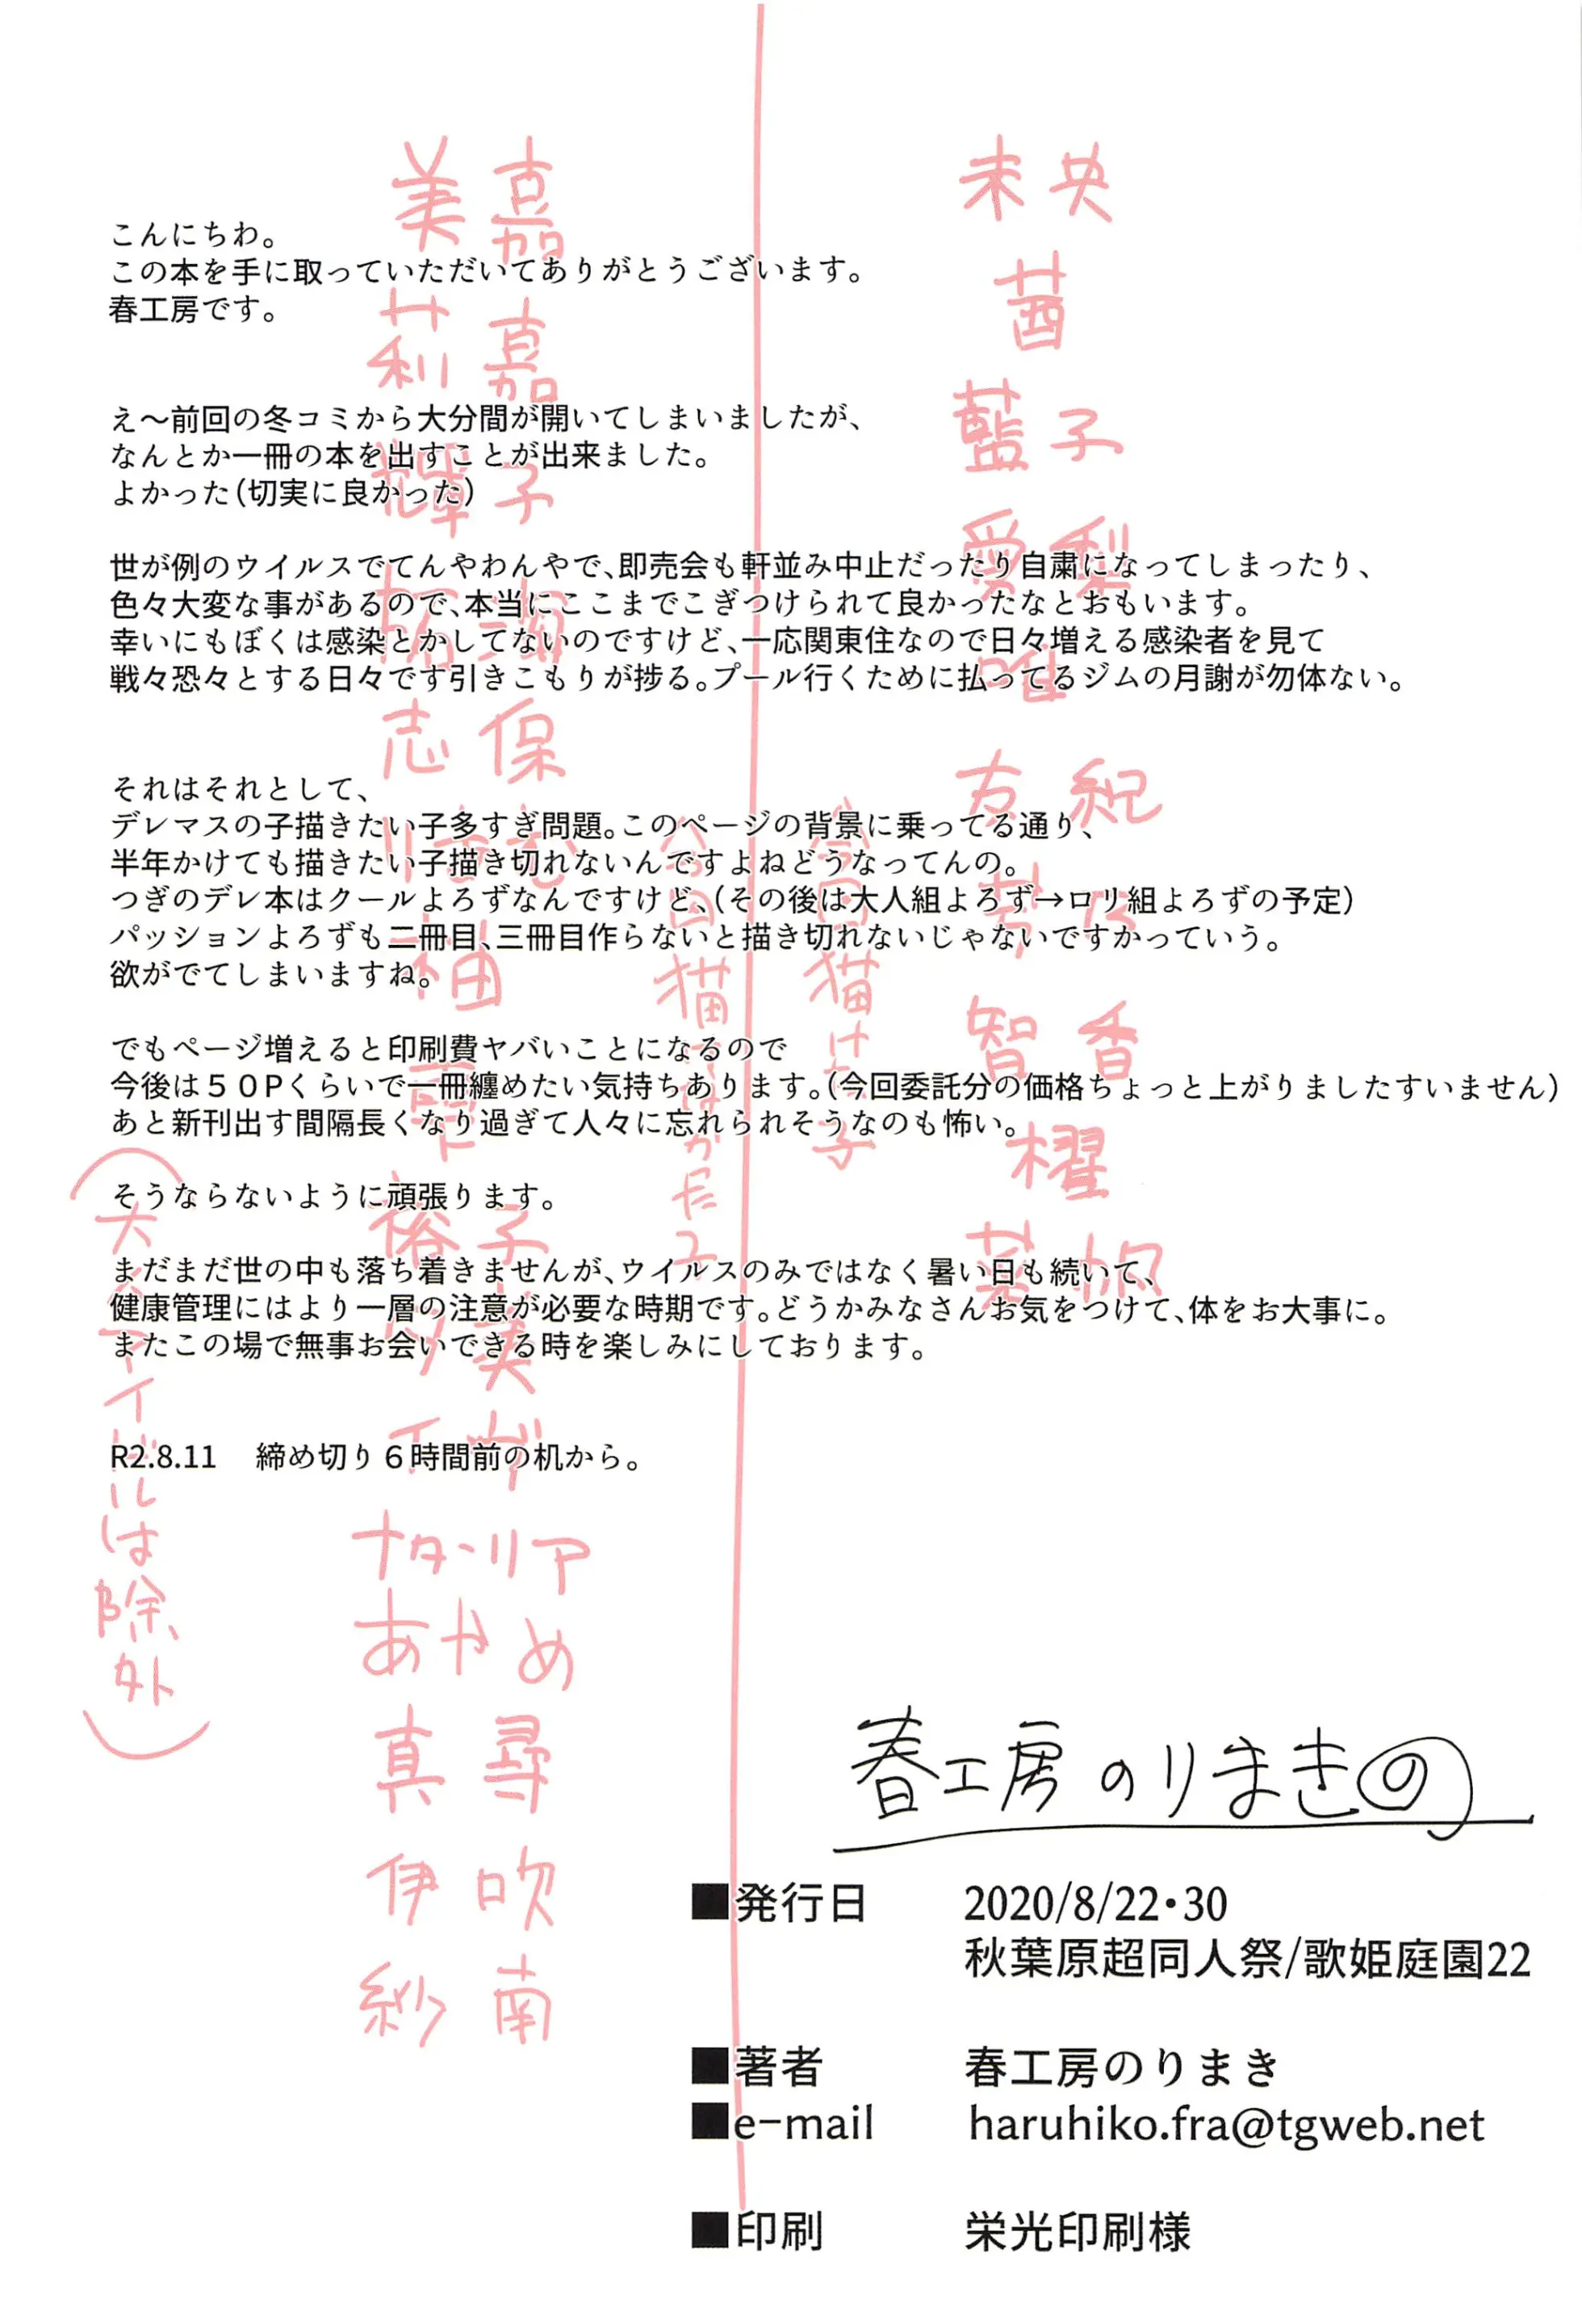 こんにちわ。
この本を手に取っていただいてありがとうございます。
春工房です。
え～前回の冬コミから大分間が開いてしまいましたが、
なんとか一冊の本を出すことが出来ました。
よかった(切実に良かった)
世が例のウイルスでてんやわんやで、即売会も軒並み中止だったり自粛になってしまったり、
色々大変な事があるので、本当にここまでこぎつけられて良かったなとおもいます。
幸いにもぼくは感染とかしてないのですけど、一応関東住なので日々増える感染者を見て
戦々恐々とする日々です引きこもりが捗る。プール行くために払ってるジムの月謝が勿体ない。
それはそれとして、
デレマスの子描きたい子多すぎ問題。このページの背景に乗ってる通り、
半年かけても描きたい子描き切れないんですよねどうなってんの。
つぎのデレ本はクールよろずなんですけど、(その後は大人組よろず→ロリ組よろずの予定)
パッションよろずも二冊目、三冊目作らないと描き切れないじゃないですかっていう。
欲がでてしまいますね。
でもページ増えると印刷費ヤバいことになるので
今後は５０Pくらいで一冊纏めたい気持ちあります。(今回委託分の価格ちょっと上がりましたすいません)
あと新刊出す間隔長くなり過ぎて人々に忘れられそうなのも怖い。
そうならないように頑張ります。
まだまだ世の中も落ち着きませんが、ウイルスのみではなく暑い日も続いて、
健康管理にはより一層の注意が必要な時期です。どうかみなさんお気をつけて、体をお大事に。
またこの場で無事お会いできる時を楽しみにしております。
R2.8.11 締め切り６時間前の机から。
未央
茜
藍子
愛梨
唯
友紀
芳乃
智香
櫂
菜帆
今回描けた子
美嘉
莉嘉
輝子
拓海
志保
りさむ
裕子
ナターリア
あやめ
真尋
伊吹
紗南
春工房のりまきの
■発行日 2020/8/22・30
秋葉原超同人祭/歌姫庭園22
■著者 春工房のりまき
■e-mail haruhiko.fra@tgweb.net
■印刷 栄光印刷様